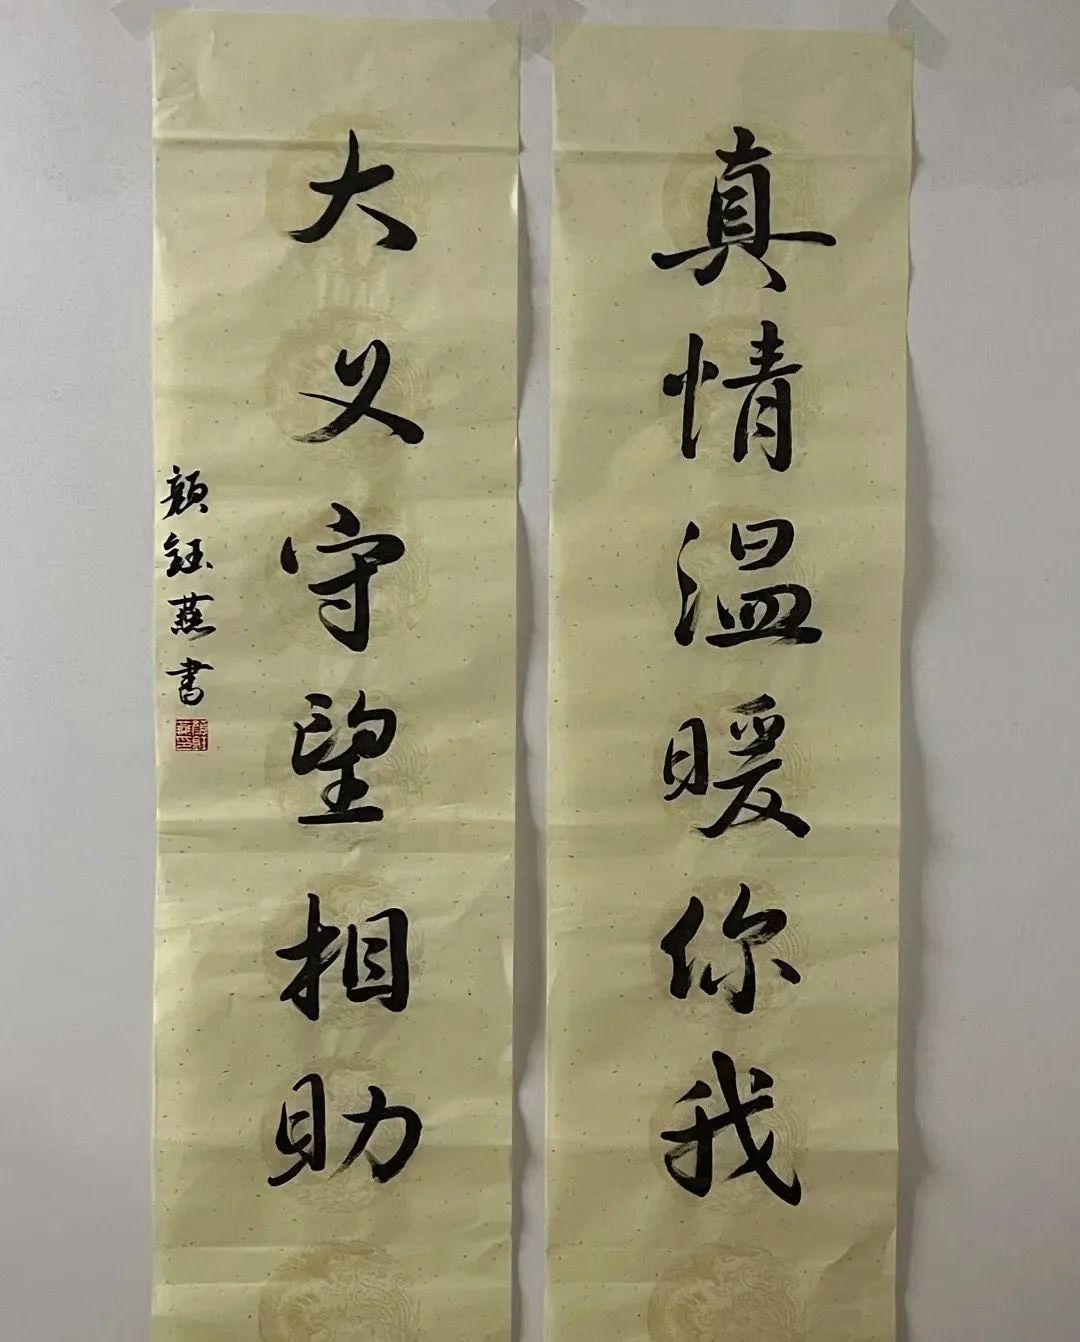 真情温暖你我
大义守望相助
颜钰燕书